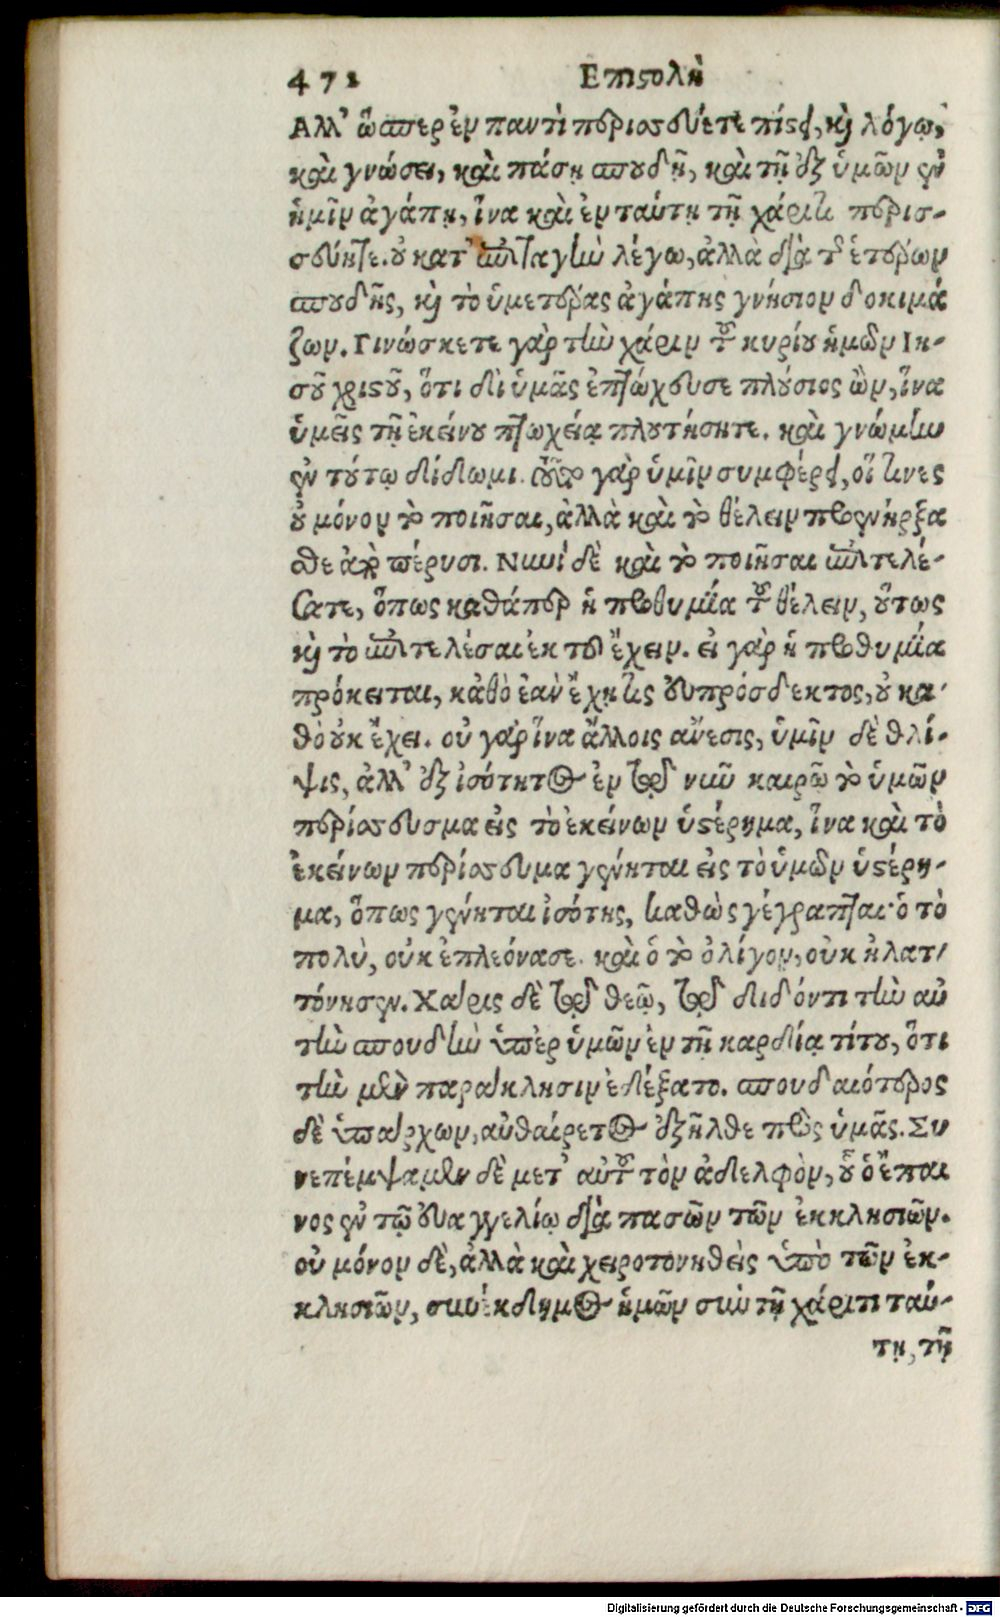 472 Επιστολὴ
Αλλ' ὥσπερ ἐν παντὶ περισσεύετε πίστει, καὶ λόγῳ,
καὶ γνώσει, καὶ πάσῃ σπουδῇ, καὶ τῇ ἐξ ὑμῶν ἐν
ἡμῖν ἀγάπῃ, ἵνα καὶ ἐν ταύτῃ τῇ χάριτι περισ-
σεύητε. οὐ κατ' ἐπιταγὴν λέγω, ἀλλὰ διὰ τῆς ἑτέρων
σπουδῆς, καὶ τὸ ὑμετέρας ἀγάπης γνήσιον δοκιμά
ζων. Γινώσκετε γὰρ τὴν χάριν τοῦ κυρίου ἡμῶν Ιη-
σοῦ χριστοῦ, ὅτι δι' ὑμᾶς ἐπτώχευσε πλούσιος ὢν, ἵνα
ὑμεῖς τῇ ἐκείνου πτωχείᾳ πλουτήσητε. καὶ γνώμην
ἐν τούτῳ δίδωμι. τοῦτο γὰρ ὑμῖν συμφέρει, οἵτινες
οὐ μόνον τὸ ποιῆσαι, ἀλλὰ καὶ τὸ θέλειν προενήρξα
σθε ἀπὸ πέρυσι. Νυνὶ δὲ καὶ τὸ ποιῆσαι ἐπιτελέ-
σατε, ὅπως καθάπερ ἡ προθυμία τοῦ θέλειν, οὕτως
καὶ τὸ ἐπιτελέσαι ἐκ τοῦ ἔχειν. εἰ γὰρ ἡ προθυμία
πρόκειται, καθὸ ἐὰν ἔχῃ τις εὐπρόσδεκτος, οὐ κα-
θὸ οὐκ ἔχει. οὐ γὰρ ἵνα ἄλλοις ἄνεσις, ὑμῖν δὲ θλί-
ψις, ἀλλ' ἐξ ἰσότητος ἐν τῷ νυῦ καιρῷ τὸ ὑμῶν
περίσσευσμα εἰς τὸ ἐκείνων ὑστέρημα, ἵνα καὶ τὸ
ἐκείνων περίσσευμα γένηται εἰς τὸ ὑμῶν ὑστέρη-
μα, ὅπως γένηται ἰσότης, καθὼς γέγραπται· ὁ τὸ
πολὺ, οὐκ ἐπλεόνασε. καὶ ὁ τὸ ὀλίγον, οὐκ ἠλατ-
τόνησεν. Χάρις δὲ τῷ θεῷ, τῷ διδόντι τὴν αὐ
τὴν σπουδὴν ὑπὲρ ὑμῶν ἐν τῇ καρδίᾳ τίτου, ὅτι
τὴν μὲν παράκλησιν ἐδέξατο. σπουδαιότερος
δὲ ὑπάρχων, αὐθαίρετος ἐξῆλθε πρὸς ὑμᾶς. Συ
νεπέμψαμεν δὲ μετ' αὐτοῦ τὸν ἀδελφὸν, οὗ ὁ ἔπαι
νος ἐν τῷ εὐαγγελίῳ διὰ πασῶν τῶν ἐκκλησιῶν.
οὐ μόνον δὲ, ἀλλὰ καὶ χειροτονηθεὶς ὑπὸ τῶν ἐκ-
κλησιῶν, συνέκδημος ἡμῶν σὺν τῇ χάριτι ταύ-
τῃ, τῇ
Digitalisierung gefördert durch die Deutsche Forschungsgemeinschaft - DFG